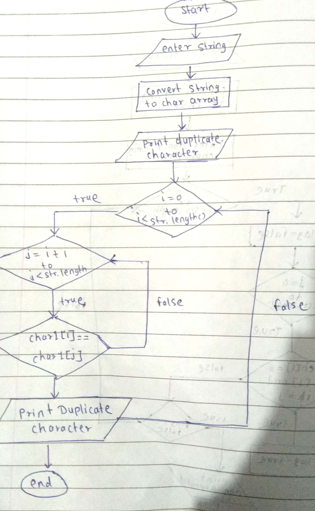 Start
enter string
Convert string
to char array
Print duplicate
character
i=0
to
i<str.length()
true
J = i + 1
to
i<str.length
true
false
false
char1[i]==
char1[j]
Print Duplicate
character
end